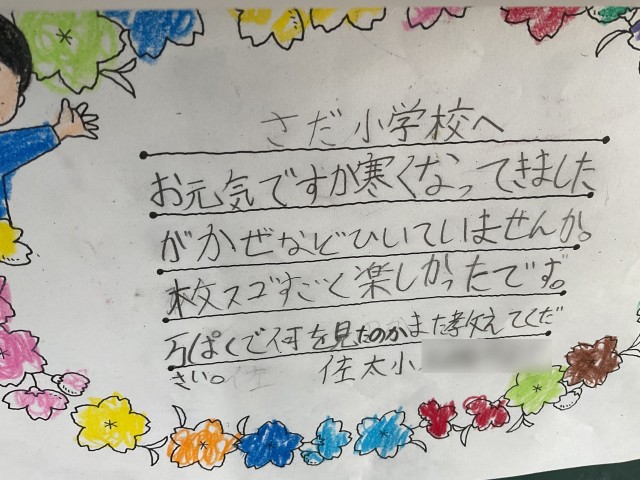 さだ小学校へ
お元気ですか寒くなってきました
がかぜなどひいていませんか。
枚スゴすごく楽しかったです。
万ぱくで何を見たのかまた教えてくだ
さい。 佐太小